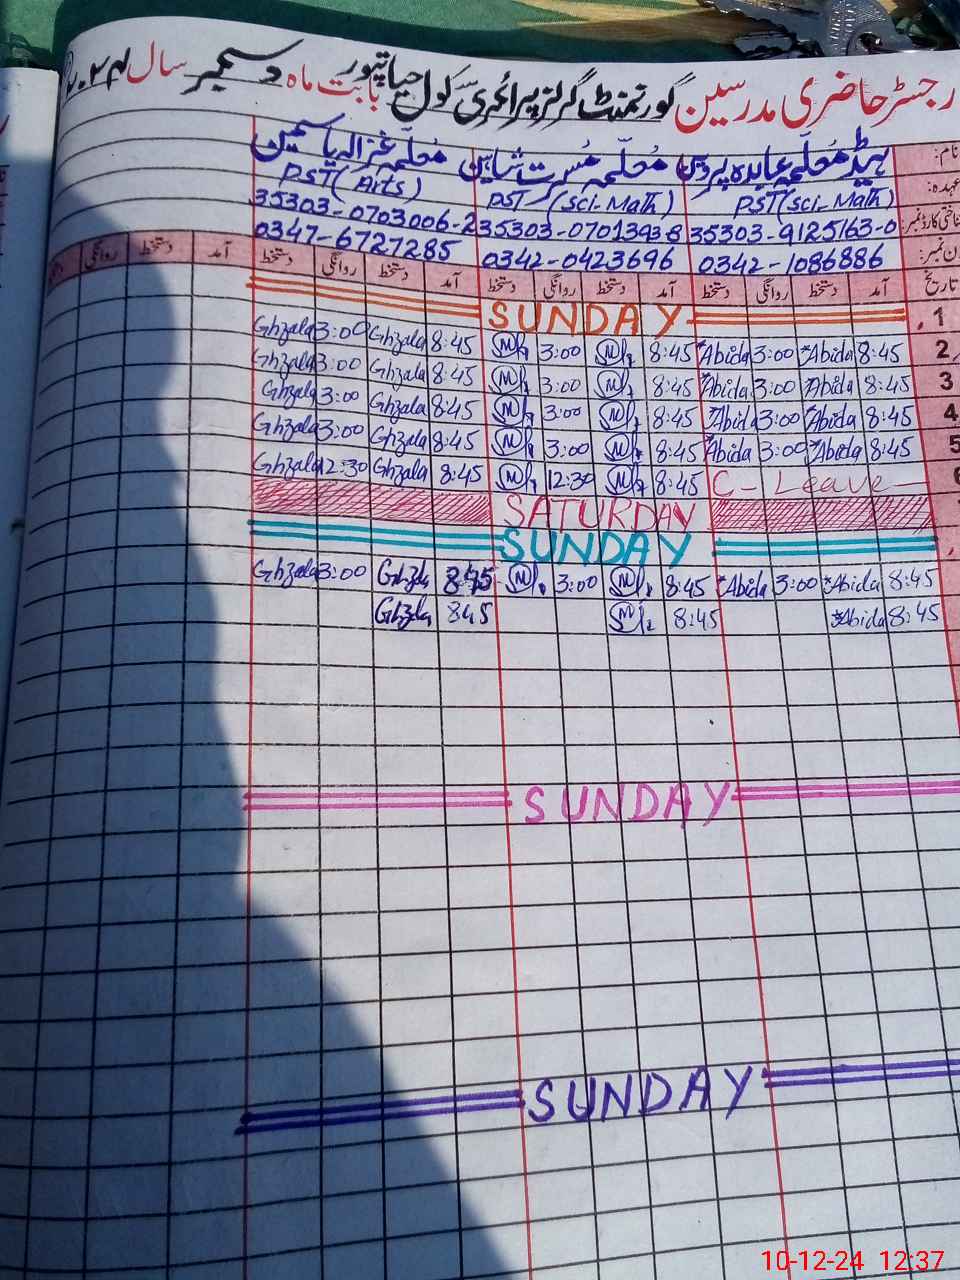 رجسٹر حاضری مدرسین گورنمنٹ گرلز پرائمری سکول حیاتپور بابت ماہ دسمبر سال ۲۰۲۴
نام: ہیڈ معلمہ عابدہ پروین معلمہ مسرت شاہین معلمہ غزالہ یاسمین
عہدہ: PST (Sci-Math) PST (Sci-Math) PST (Arts)
شناختی کارڈ نمبر: 35303-9125163-0 35303-0701393-8 35303-0703006-2
فون نمبر: 0342-1086886 0342-0423696 0347-6727285
تاریخ آمد دستخط روانگی دستخط آمد دستخط روانگی دستخط آمد دستخط روانگی دستخط آمد دستخط روانگی
1 SUNDAY
2 8:45 Abida 3:00 Abida 8:45 3:00 8:45 Ghzala 3:00 Ghzala
3 8:45 Abida 3:00 Abida 8:45 3:00 8:45 Ghzala 3:00 Ghzala
4 8:45 Abida 3:00 Abida 8:45 3:00 8:45 Ghzala 3:00 Ghzala
5 8:45 Abida 3:00 Abida 8:45 3:00 8:45 Ghzala 3:00 Ghzala
6 C - Leave 8:45 12:30 8:45 Ghzala 12:30 Ghzala
SATURDAY
SUNDAY
8:45 Abida 3:00 Abida 8:45 3:00 8:45 Ghzla 3:00 Ghzala
8:45 Abida 8:45 845 Ghzla
SUNDAY
SUNDAY
10-12-24 12:37